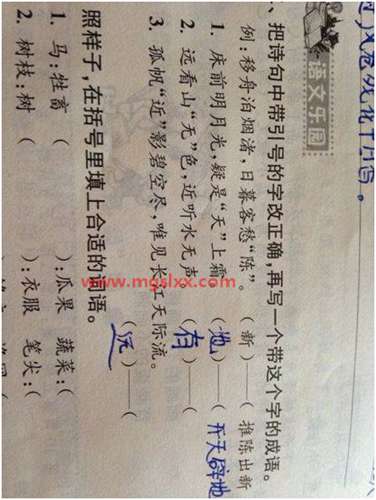 语文乐园
、把诗句中带引号的字改正确,再写一个带这个字的成语。
例:移舟泊烟渚,日暮客愁“陈”。 (新)——( 推陈出新
1. 床前明月光,疑是“天”上霜 (地)——( 开天辟地
2. 远看山“无”色,近听水无声 (有)——(
3. 孤帆“近”影碧空尽,唯见长江天际流。 (远)——(
照样子,在括号里填上合适的词语。
1. 马:牲畜 ( ):瓜果 蔬菜:(
2. 树枝:树 ( ):衣服 笔尖:(
www.mgslxx.com